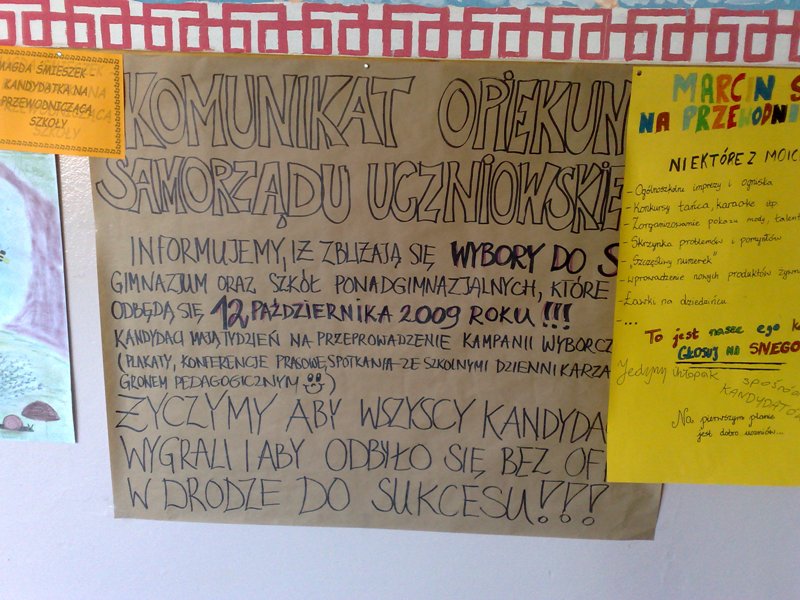 MAGDA ŚMIESZEK
KANDYDATKA NA
PRZEWODNICZĄCĄ
SZKOŁY
KOMUNIKAT OPIEKUN
SAMORZĄDU UCZNIOWSKIE
INFORMUJEMY, IŻ ZBLIŻAJĄ SIĘ WYBORY DO S
GIMNAZJUM ORAZ SZKÓŁ PONADGIMNAZJALNYCH, KTÓRE
ODBĘDĄ SIĘ 12 PAŹDZIERNIKA 2009 ROKU !!!
KANDYDACI MAJĄ TYDZIEŃ NA PRZEPROWADZENIE KAMPANII WYBORCZ
(PLAKATY, KONFERENCJE PRASOWE, SPOTKANIA ZE SZKOLNYMI DZIENNIKARZA
GRONEM PEDAGOGICZNYM )
ŻYCZYMY ABY WSZYSCY KANDYDA
WYGRALI I ABY ODBYŁO SIĘ BEZ OF
W DRODZE DO SUKCESU!!!
MARCIN S
NA PRZEWODNI
NIEKTÓRE Z MOIC
- Ogólnoszkolne imprezy i ogniska
- Konkursy tańca, karaoke itp.
- Zorganizowanie pokazu mody, talent
- Skrzynka problemów i pomysłów
- „Szczęśliwy numerek"
- wprowadzenie nowych produktów żyw
- Ławki na dziedzińcu
- ...
To jest nasze ego k
GŁOSUJ NA ŚNIEGO
Jedyny chłopak
spośró
KANDYDATÓ
Na pierwszym planie
jest dobro uczniów...